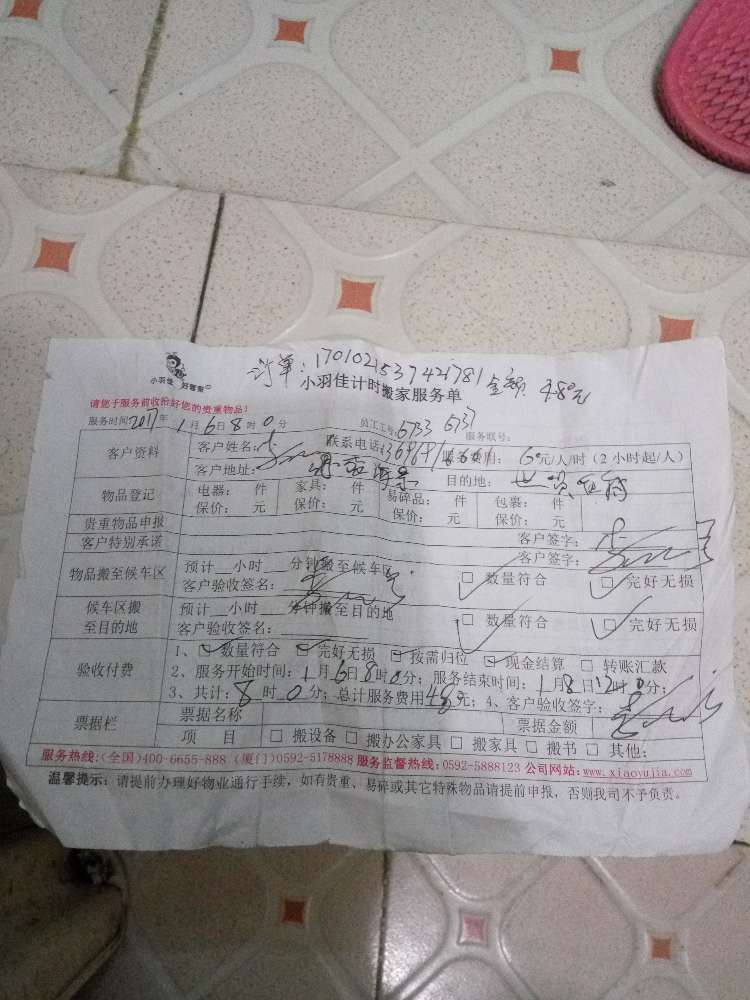 订单：1701021537421781 金额 480元
小羽佳 好管家
小羽佳计时搬家服务单
请您于服务前收拾好您的贵重物品！
服务时间2017年1月6日8时0分 员工工号：6733 6737 服务联号：
客户资料 客户姓名： 联系电话： 服务费用：60元/人/时（2小时起/人）
客户地址： 目的地：
物品登记 电器： 件 家具： 件 易碎品： 件 包裹： 件
保价： 元 保价： 元 保价： 元 保价： 元
贵重物品申报 客户签字：
客户特别承诺 客户签字：
物品搬至候车区 预计__小时__分钟搬至候车区 数量符合 完好无损
客户验收签名：
候车区搬至目的地 预计__小时__分钟搬至目的地 数量符合 完好无损
客户验收签名：
验收付费 1、数量符合 完好无损 按需归位 现金结算 转账汇款
2、服务开始时间：1月6日8时0分；服务结束时间：1月8日12时0分；
3、共计：8时0分；总计服务费用480元；4、客户验收签字：
票据栏 票据名称 票据金额
项 目 搬设备 搬办公家具 搬家具 搬书 其他：
服务热线：(全国)400-6655-888 (厦门)0592-5178888 服务监督热线：0592-5888123 公司网站：www.xiaoyujia.com
温馨提示：请提前办理好物业通行手续，如有贵重、易碎或其它特殊物品请提前申报，否则我司不予负责。